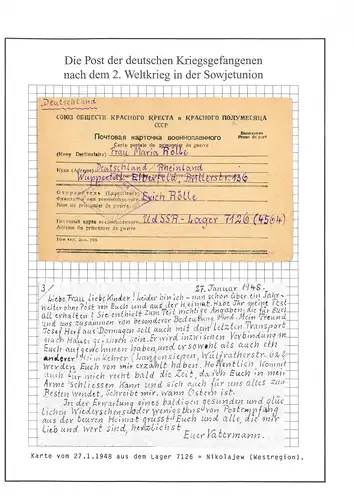 Die Post der deutschen Kriegsgefangenen
nach dem 2. Weltkrieg in der Sowjetunion
Deutschland
СОЮЗ ОБЩЕСТВ КРАСНОГО КРЕСТА и КРАСНОГО ПОЛУМЕСЯЦА
СССР
Почтовая карточка военнопленного
Carte postale du prisonnier de guerre
Frau Maria Rölle
Deutschland Rheinland
Wuppertal Elberfeld, Brillerstr. 136
Erich Rölle
Nom du prisonnier de guerre
UdSSR-Lager 7126 (4564)
Adresse du prisonnier de guerre
3/ 27. Januar 1948.
Liebe Frau, liebe Kinder! Leider bin ich nun schon über ein Jahr
weiter ohne Post von Euch und aus der Heimat. Habt Ihr meine Post
all erhalten? Sie enthielt zum Teil wichtige Angaben, die für Euch
und uns zusammen von besonderer Bedeutung sind. Mein Freund
Josef Herf aus Dormagen soll auch mit dem letzten Transport
nach Hause gewesen sein. Er wird inzwischen Verbindung mit
Euch aufgenommen haben und er sowohl als auch ein
anderer Heimkehrer (Langonsiepen, Wülfratherstr.
werden Euch von mir erzählt haben. Hoffentlich kommt
auch für mich recht bald die Zeit, da ich Euch in meine
Arme schliessen kann und sich auch für uns alles zum
Besten wendet. Schreibt mir, wann Ostern ist.
In der Erwartung eines baldigen gesunden und glück
lichen Wiedersehens oder wenigstens von Postempfang
aus der teuren Heimat grüsst Euch und alle die mir
lieb und wert sind, herzlichst
Euer Vatermann.
Karte vom 27.1.1948 aus dem Lager 7126 = Nikolajew (Westregion).